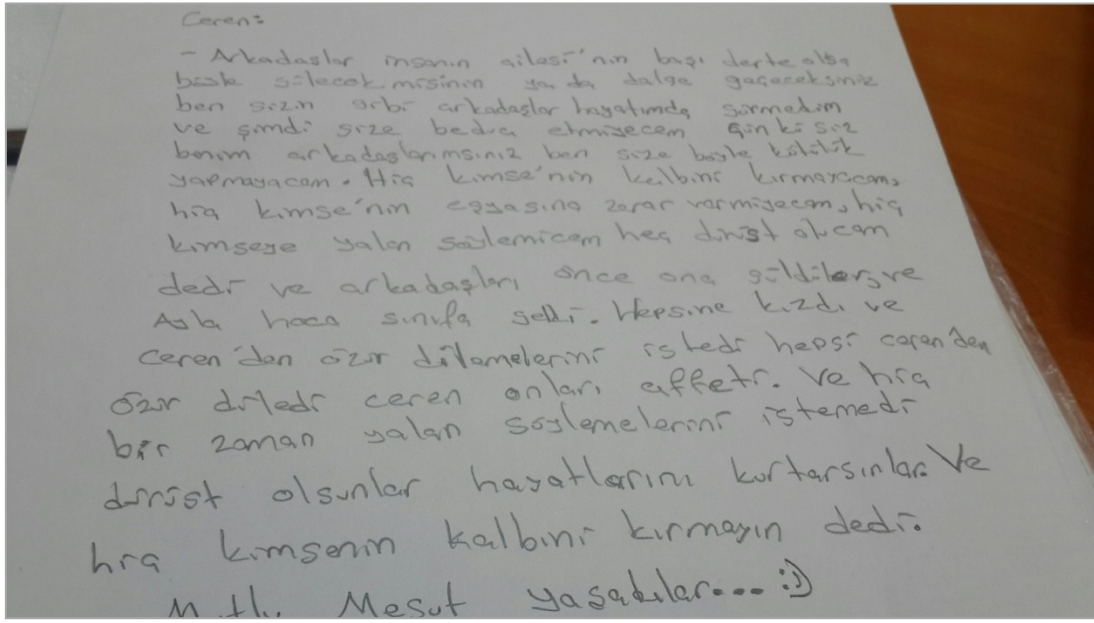 Ceren:
- Arkadaşlar insanın ailesi'nin başı derte olsa
böyle gülecek misinin ya da dalga geçeceksiniz
ben sizin gibi arkadaşlar hayatımda görmedim
ve şimdi size bedva etmiyecem çünki siz
benim arkadaşlarımsınız ben size böyle kötülük
yapmayacam. Hiç kimse'nin kalbini kırmayacam,
hiç kimse'nin eşyasına zarar vermiyecem, hiç
kimseye yalan söylemicem hep dürüst olucam
dedi ve arkadaşları önce ona güldüler, ve
Ayla hoca sınıfa geldi. Hepsine kızdı ve
Ceren'den özür dilemelerini istedi hepsi ceren'den
özür diledi ceren onları affeti. Ve hiç
bir zaman yalan söylemelerini istemedi
dürüst olsunlar hayatlarını kurtarsınlar. Ve
hiç kimsenin kalbini kırmayın dedi.
Mutlu Mesut yaşadılar... :)